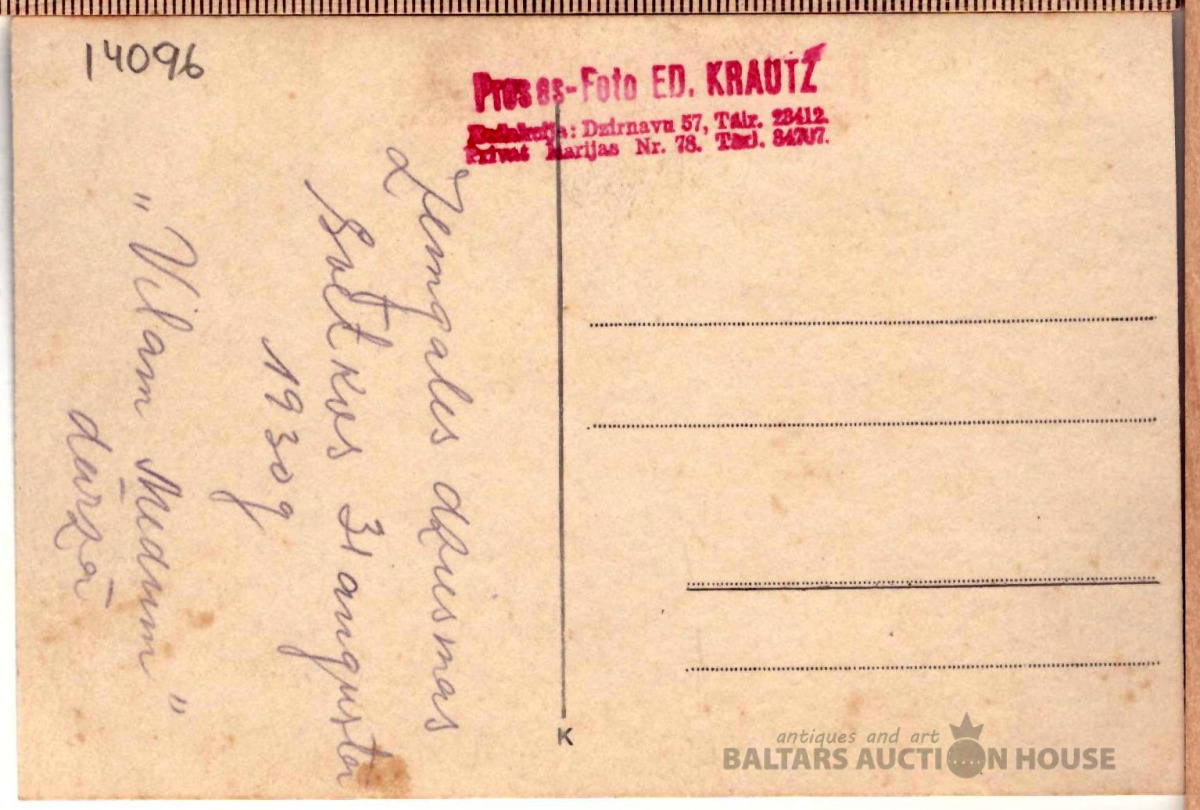 14096
Preses-Foto ED. KRAUTZ
Redakcija: Dzirnavu 57, Tālr. 23412.
Privat Marijas Nr. 78. Tāl. 84707.
Zemgales dziesmas
Svētkos 31 augusta
1930 g
"Vilam Medum"
dārzā
K
antiques and art
BALTARS AUCTION HOUSE